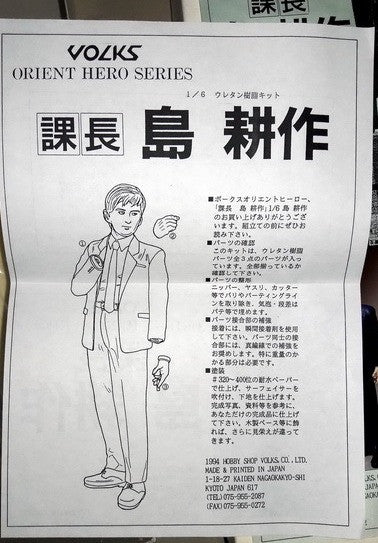 VOLKS
ORIENT HERO SERIES
1/6 ウレタン樹脂キット
課長 島 耕作
■ボークスオリエントヒーロー、
「課長 島 耕作」1/6 島 耕作
のお買い上げありがとうござ
います。組立ての前にぜひお
読み下さい。
■パーツの確認
このキットは、ウレタン樹脂
パーツ全3点のパーツが入っ
ています。全部揃っているか
確認して下さい。
■パーツの整形
ニッパー、ヤスリ、カッター
等でバリやパーティングライ
ンを取り除き、気泡・段差は
パテ等で埋めます。
■パーツ接合部の補強
接着には、瞬間接着剤を使用
して下さい。パーツ同士の接
合部には、真鍮線での補強を
お奨めします。特に重量のか
かる部分は必要です。
■塗装
#320~400位の耐水ペーパー
で仕上げ、サーフェイサーを
吹付け、下地を仕上げます。
完成写真、資料等を参考に、
あなただけの完成品に仕上げ
て下さい。木製ベース等に飾
れば、さらに見栄えが違って
きます。
①
②
③
1994 HOBBY SHOP VOLKS.CO.,LTD.
MADE & PRINTED IN JAPAN
1-18-27 KAIDEN NAGAOKAKYO-SHI
KYOTO JAPAN 617
(TEL)075-955-2087
(FAX)075-955-0272
課長